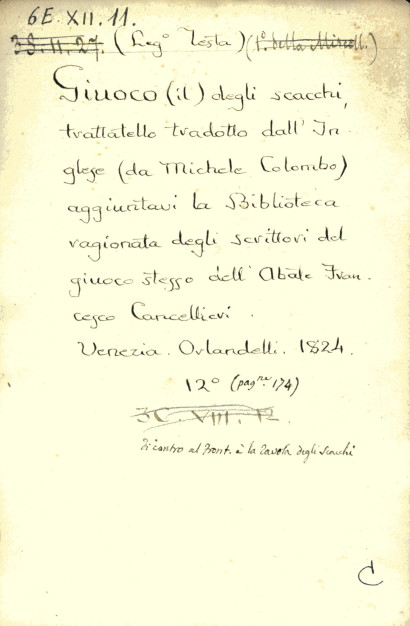 6E. XII. 11.
3S. 11. 27. (Leg.º Testa) (1.º della Miscell.)
Giuoco (il) degli scacchi,
trattatello tradotto dall' In
glese (da Michele Colombo)
aggiuntavi la Biblioteca
ragionata degli scrittori del
giuoco stesso dell' Abate Fran-
cesco Cancellieri.
Venezia. Orlandelli. 1824.
12º (pag.ne 174)
3C. VIII. 12.
Di contro al front. è la tavola degli scacchi
C